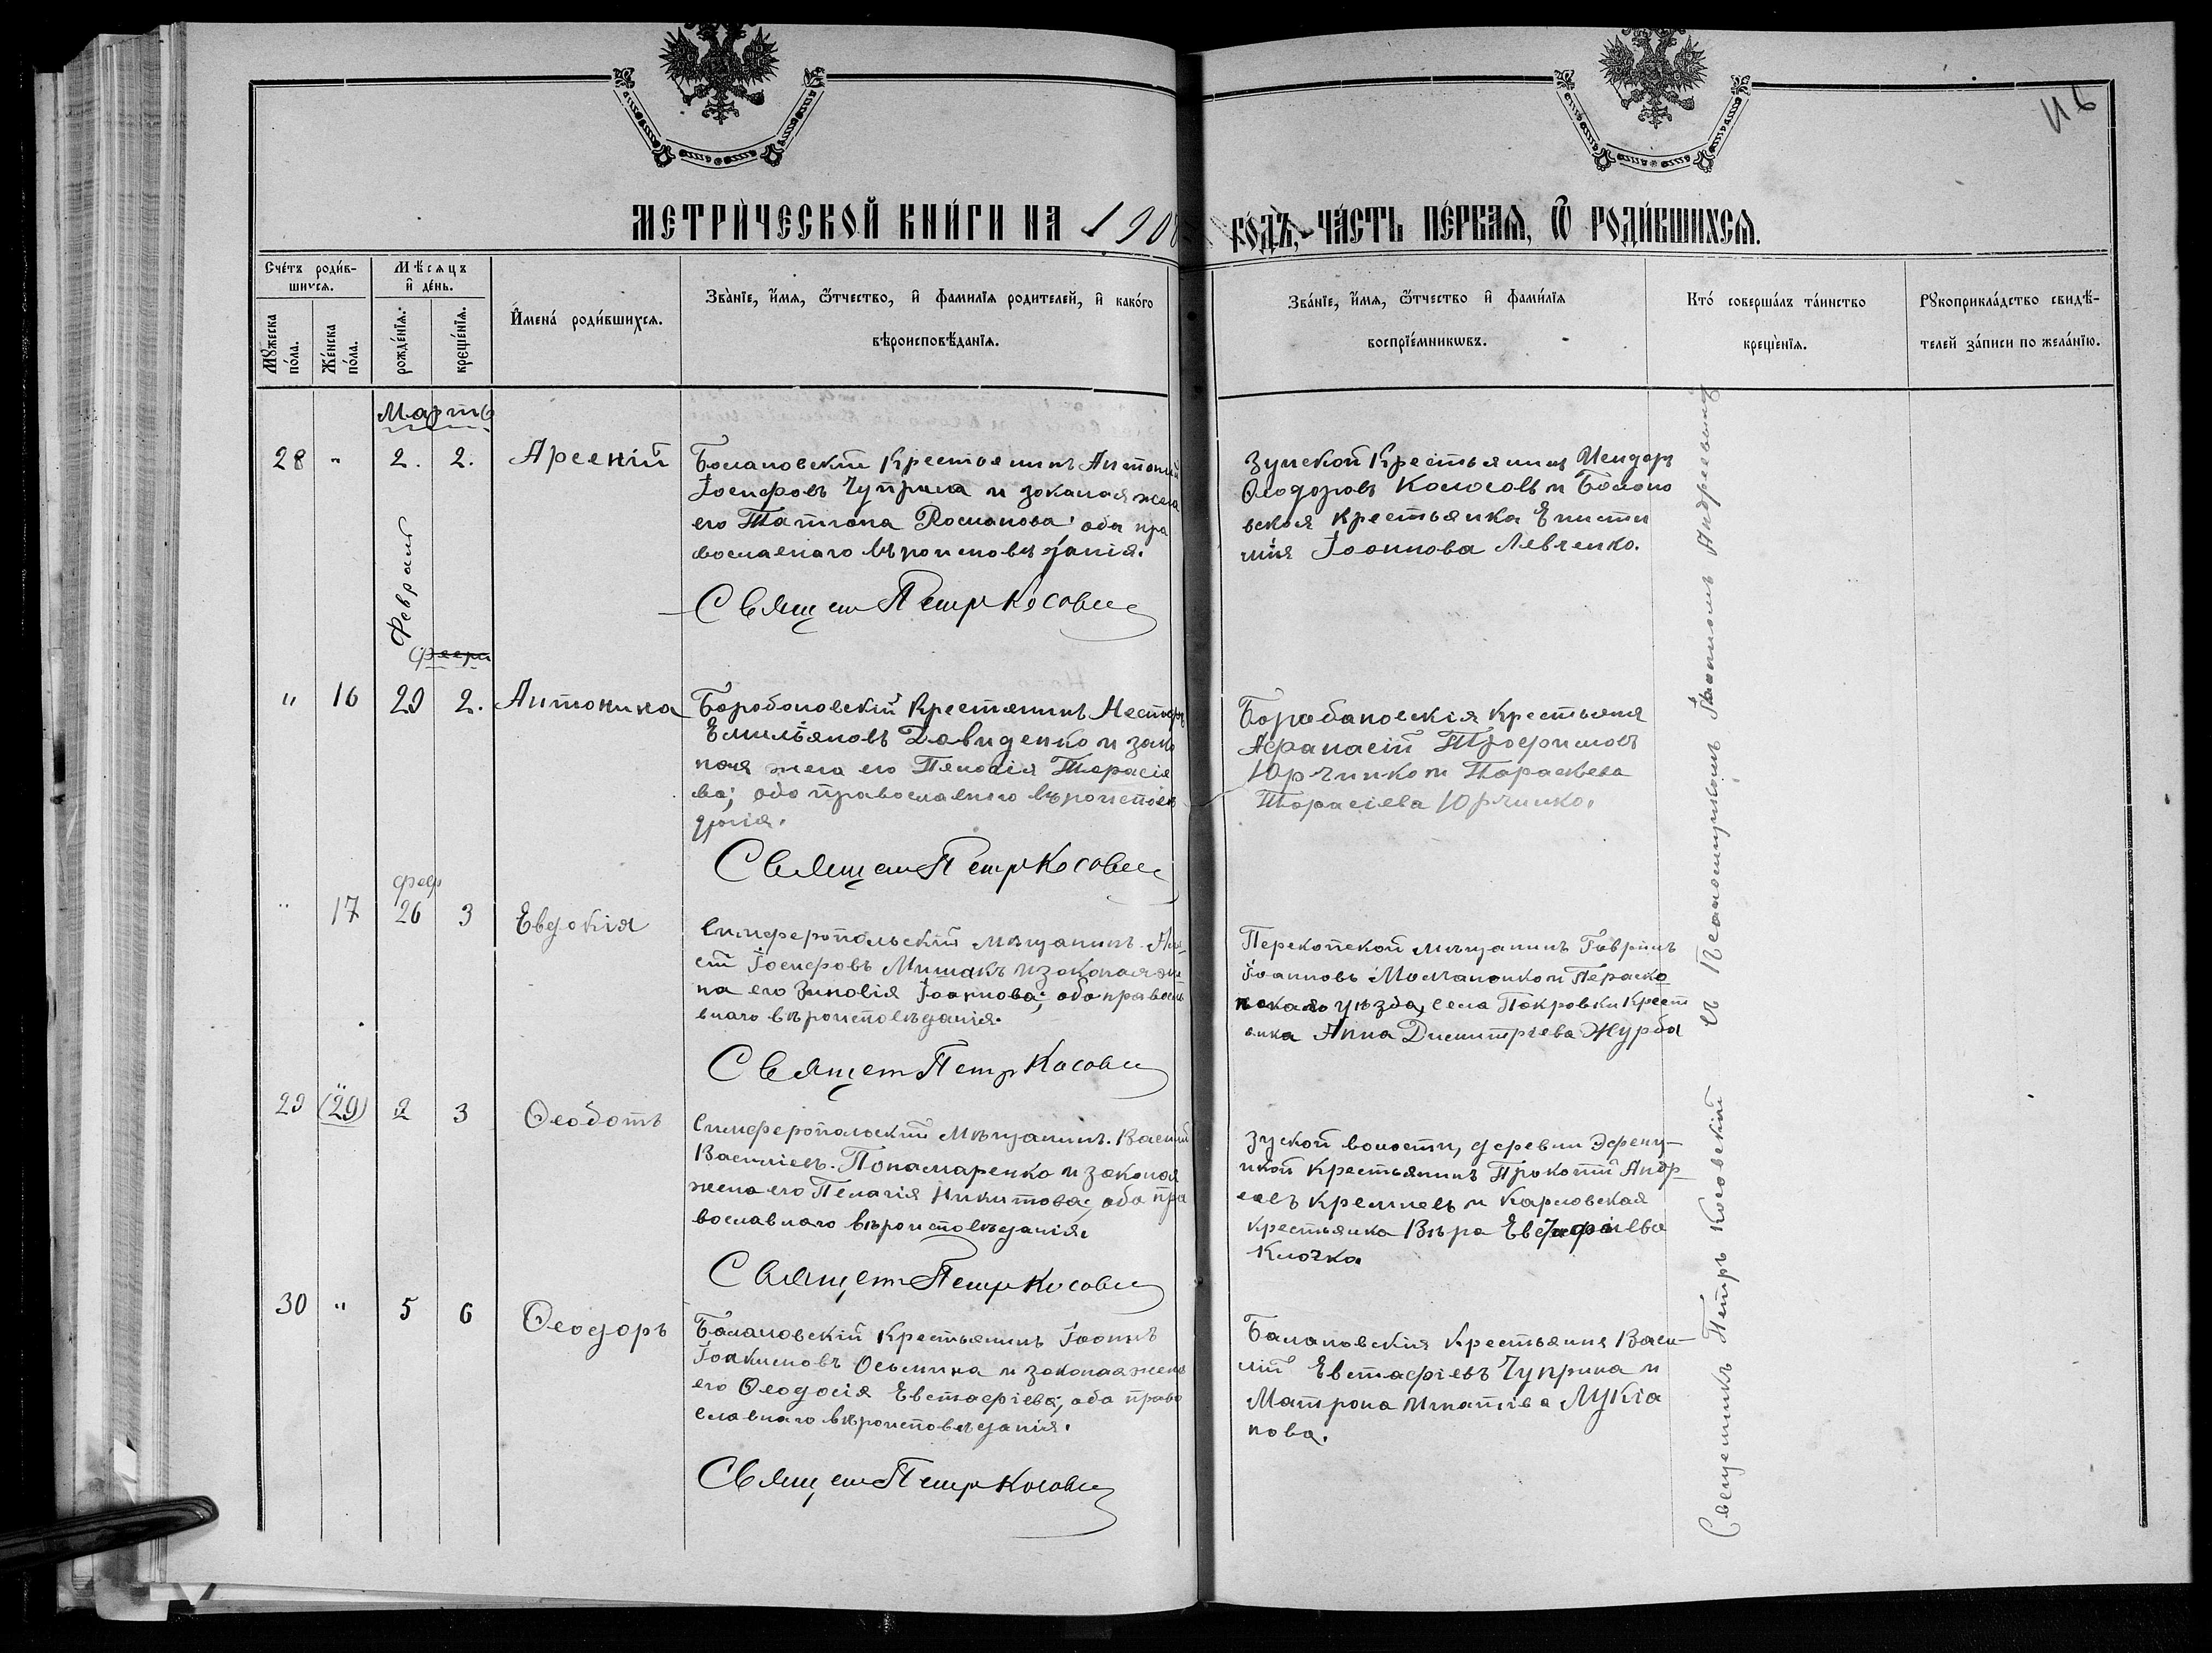 116
МЕТРИЧЕСКОЙ КНИГИ НА 1908 ГОДЪ, ЧАСТЬ ПЕРВАЯ, Ѿ РОДИВШИХСЯ.
Счетъ родившихся.
Мужеска пола.
Женска пола.
Мѣсяцъ и день.
рожденїя.
крещенїя.
Имена родившихся.
Званїе, имя, ѿтчество, и фамилїя родителей, и какого
вѣроисповѣданїя.
Званїе, имя, ѿтчество и фамилїя
воспрїемникѡвъ.
Кто совершалъ таинство
крещенїя.
Рукоприкладство свидѣ-
телей записи по желанїю.
Мартъ
28 " 2. 2. Арсеній
Балановскій Крестьянинъ Антоній
Іосифовъ Чуприна и законая жена
его Татіана Романова; оба пра
вославнаго вѣроисповѣданія.
Священ Петръ Косовск
Зуйской Крестьянинъ Исидоръ
Ѳеодоровъ Колосовъ и Балано
вская крестьянка Еписти
мія Іоаннова Левченко.
Февраль
" 16 29 2. Антонина
Борабановскій Крестьянинъ Несторъ
Емиліановъ Давиденко и зако
ная жена его Пелагія Тарасіе
ва; оба православнаго вѣроисповѣ
данія.
Священ Петръ Косовск
Борабановскія Крестьяня
Афанасій Трофимовъ
Юрчинко и Параскева
Тарасіева Юрчинко.
фев
" 17 26 3 Евдокія
Симферопольскій мѣщанинъ
Іосифовъ Мишакъ и законая же
на его Зиновія Іоаннова; оба правосла
внаго вѣроисповѣданія.
Священ Петръ Косовск
Перекопской мѣщанинъ Гавріилъ
Іоанновъ Молчанко и Переко
пскаго уѣзда, села Покровки Крест
янка Анна Димитріева Журба
29 (29) 2 3 Ѳеодотъ
Симферопольскій Мѣщанинъ Василій
Василіевъ Понамаренко и законая
жена его Пелагія Никитова; оба пра
вославнаго вѣроисповѣданія.
Священ Петръ Косовск
Зуской волости, деревни
Крестьянинъ Прокопій Андр
еевъ Кремневъ и Карловская
крестьянка Вѣра
Клочка
30 " 5 6 Ѳеодоръ
Балановскій Крестьянинъ Іоаннъ
Іоакимовъ Осьмина и законая жена
его Ѳеодосія Евстафіева; оба право
славнаго вѣроисповѣданія.
Священ Петръ Косовск
Балановскія Крестьяня Васи-
лій Евстафіевъ Чуприна и
Матрона Игнатіева Лукіа
нова.
Священникъ Петръ Косовскій съ Псаломщикомъ Іоанномъ Андреевымъ